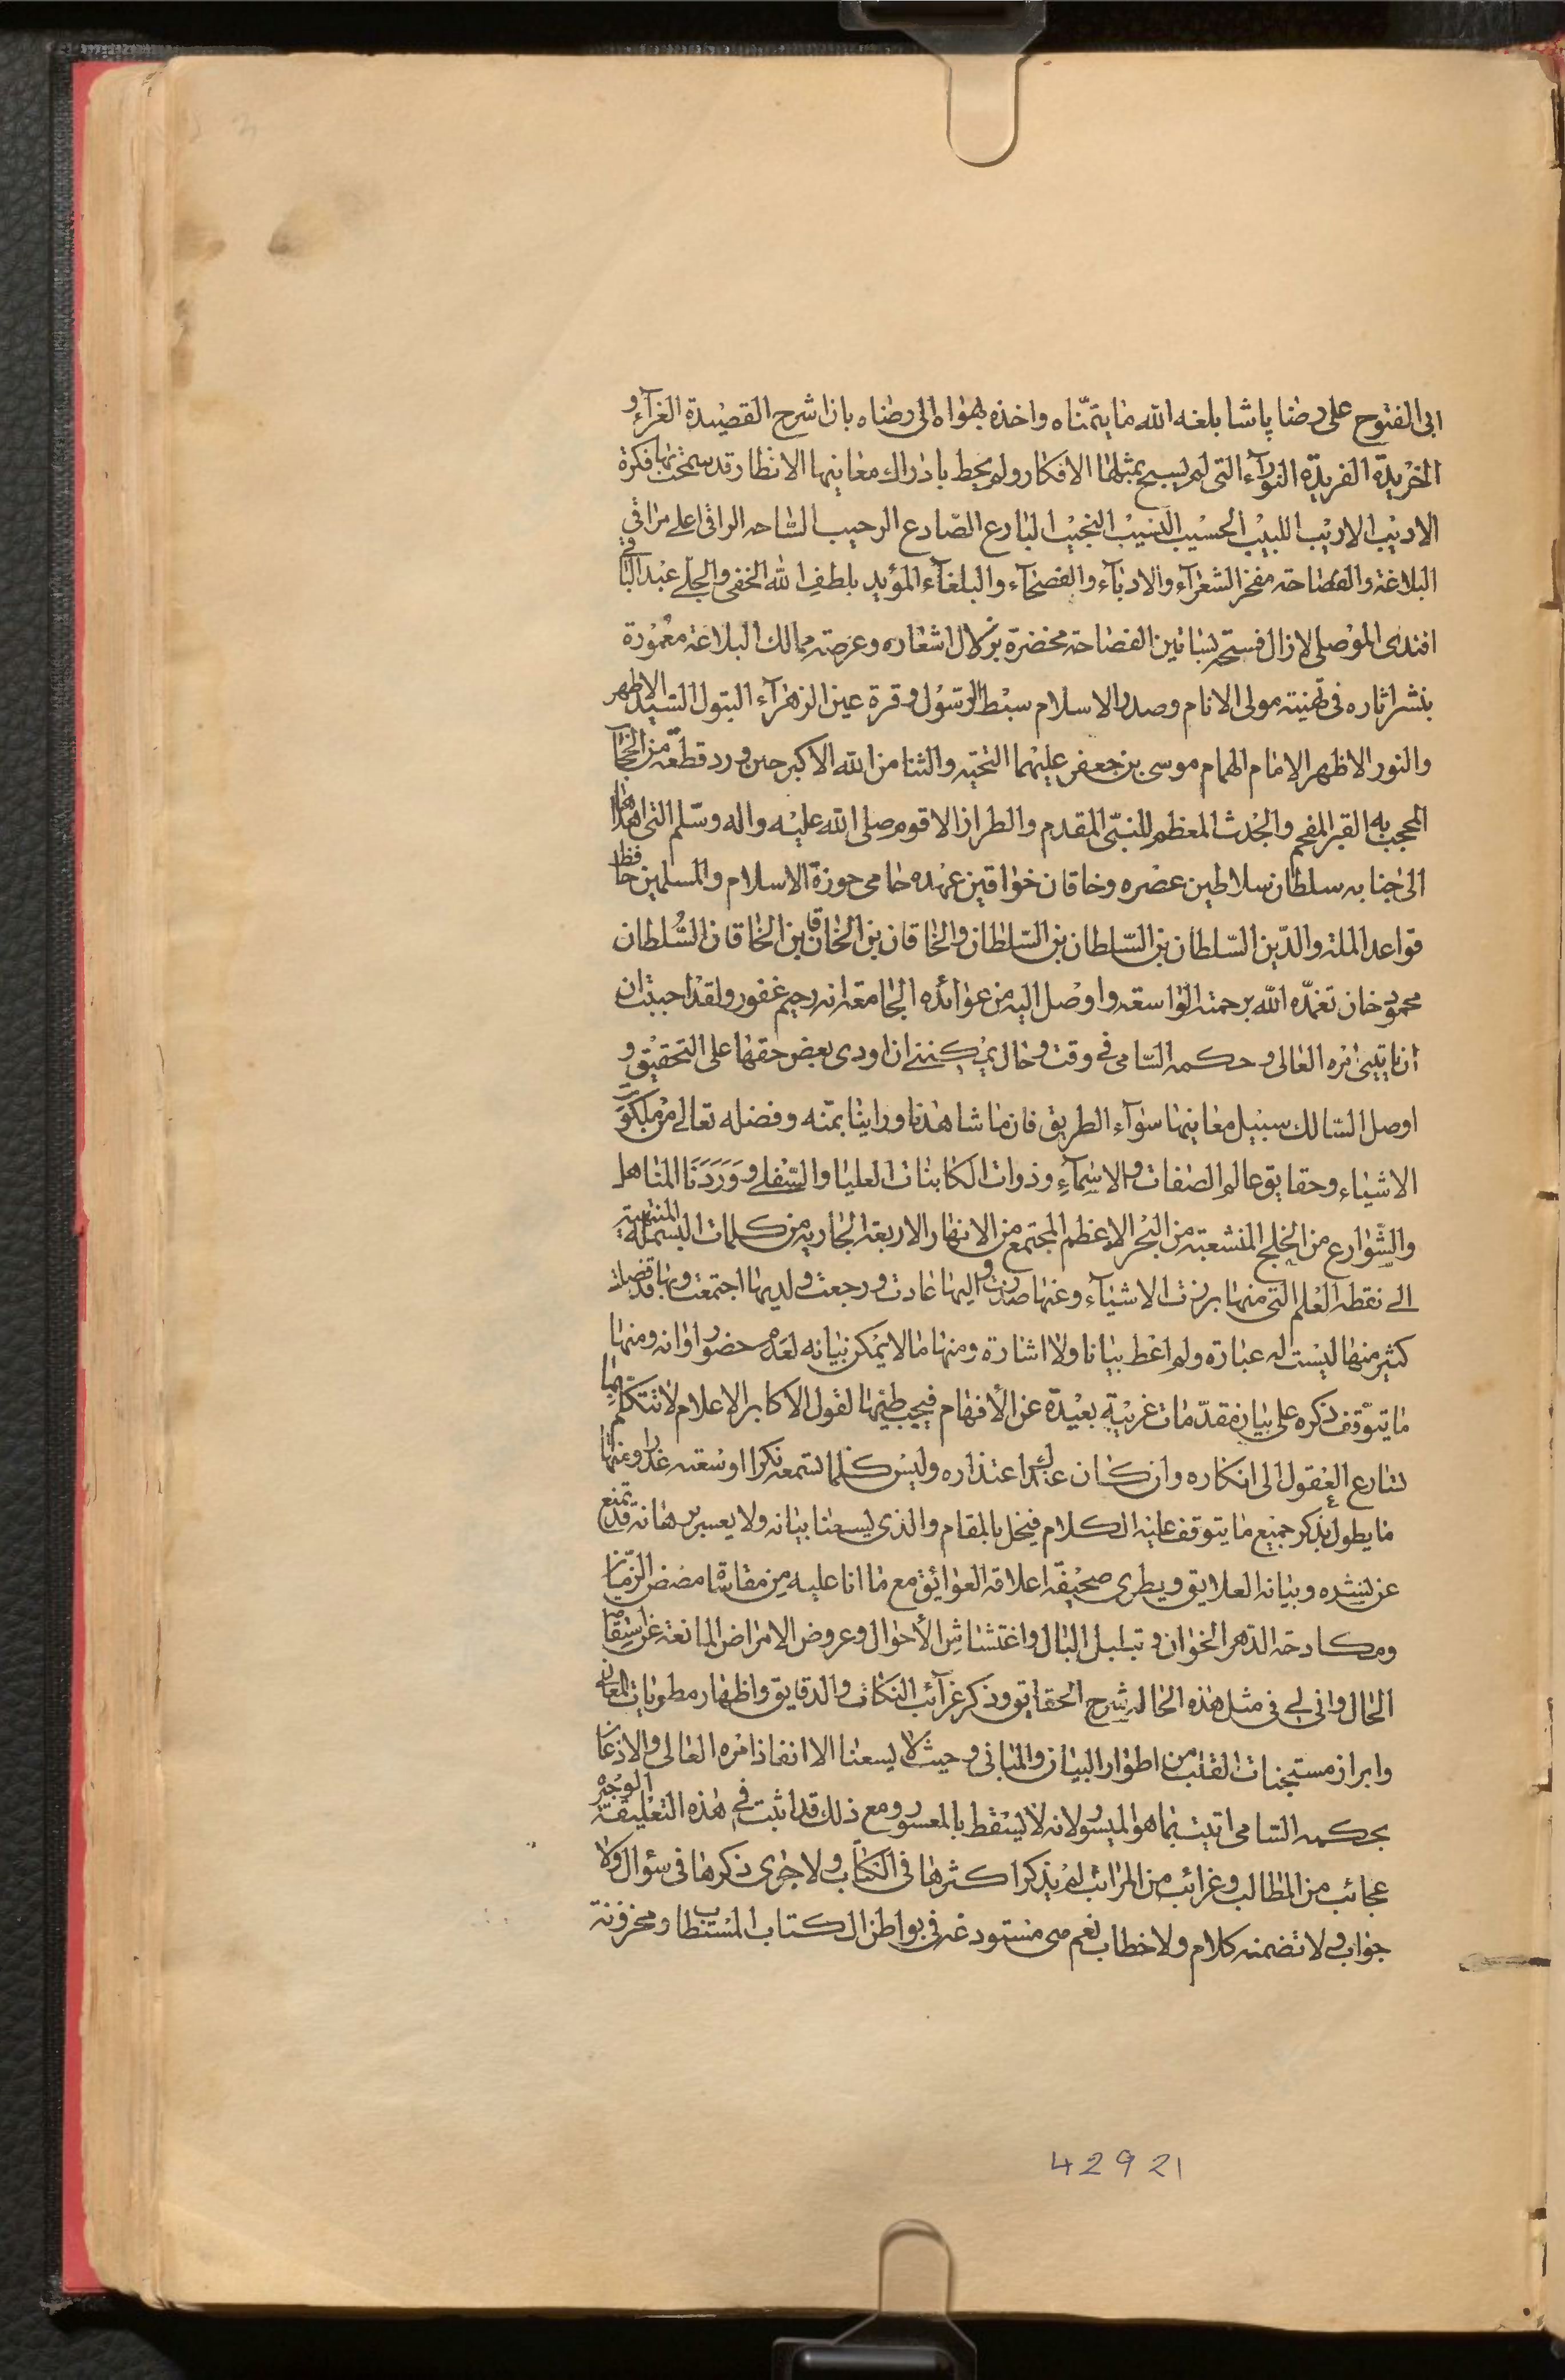 ابى الفتوح على رضا پاشا بلغه الله ما يتمنّاه واخذه بهواه الى رضاه بان اشرح القصيدة الغرآء و
الخريدة الفريدة النورآء التى لم يسبح بمثلها الافكار ولم يحط بادراك معانيها الانظار قد سمحت بها فكرة
الاديب الاريب اللبيب الحسيب النسيب النجيب البارع الصادع الرحيب الساحه الراقى اعلى مراقى
البلاغة والفصاحة مفخر الشعرآء والادبآء والفصحآء والبلغآء المؤيد بلطف الله الخفى والجلى عبد الباقى
افندى الموصلى لازال فستحه بساتين الفصاحة مخضرّة بزلال اشعاره وعرصة ممالك البلاغة معمورة
بنشر اثاره فى تهنيته مولى الانام وصدر الاسلام سبط الرسول وقرة عين الزهرآء البتول السيد الاطهر
والنور الاظهر الامام الهمام موسى بن جعفر عليهما التحيّة والثنا من الله الاكبر حين ورد قطعة من الحجاب
المحجب به القبر المفخم والجدث المعظم للنبىّ المقدم والطراز الاقوم صلى الله عليه واله وسلّم التى اهداها
الى جنابه سلطان سلاطين عصره وخاقان خواقين عهده حامى حوزة الاسلام والمسلمين حافظ
قواعد الملة والدّين السّلطان بن السّلطان بن السّلطان والخاقان بن الخاقان بن الخاقان السُّلطان
محمود خان تغمّده الله برحمته الواسعة واوصل اليه من عوائده الجامعة انه رحيم غفور ولقد احببت ان
ان ياتينى امره العالى وحكمه السّامى فى وقت وحال يمكننى ان اودى بعض حقها على التحقيق و
اوصل السّالك سبيل معانيها سوآء الطريق فان ما شاهدنا وراينا بمنّه وفضله تعالى من ملكوت
الاشياء وحقايق عالم الصفات والاسمآءِ وذوات الكاينات العليا والسّفلى وَوَرَدَنَا المناهل
والشّوارع من الخلج المنشعبة من البحر الاعظم المجتمع من الانهار الاربعة الجارية من كلمات البسملة المنتهية
الى نقطة العلم التى منها برزت الاشيآء وعنها صدرت واليها عادت ورجعت ولديها اجتمعت وبها قد فصلت
كثير منها ليست له عبارة ولم اعط بيانا ولا اشارة ومنها ما لا يمكن بيانه لعدم حضور اوانه ومنها
ما يتوقف ذكره على بيان مقدّمات غريبةٍ بعيدة عن الأفهام فيجب طيها لقول الاكابر الاعلام لا تتكلم بما
تسارع العقول الى انكاره وان كان عندك اعتذاره وليس كلما تسمعه نكرا اوسعته عذرا ومنها
ما يطول بذكر جميع ما يتوقف عليه الكلام فيخل بالمقام والذى يسعنا بيانه ولا يعسر برهانه قد تمنع
عن نشده وبيانه العلايق ويطرى صحيفة اعلاقه العوائق مع ما انا عليه من مقاساة مضض الزّمان
ومكادحة الدّهر الخوان وتبلبل البال واغتشاش الأحوال وعروض الامراض المانعة عن استقامة
الحال وانى لى فى مثل هذه الحالة شرح الحقايق وذكر غرآئب النكات والدقايق واظهار مطويات المعانى
وابراز مستجنات القلب من اطوار البيان والمبانى وحيث لا يسعنا الا انفاذ امره العالى والاذعان
بحكمه السّامى اتيت بما هو الميسور لانه لا يسقط بالمعسور ومع ذلك قد اثبت فى هذه التعليقة الوجيزة
عجائب من المطالب وغرائب من المراتب لم يذكر اكثرها فى الكتاب ولا جرى ذكرها فى سئوال ولا
جواب ولا تضمنه كلام ولا خطاب نعم هى مستودعة فى بواطن الكتاب المستطاب ومخزونة
42921